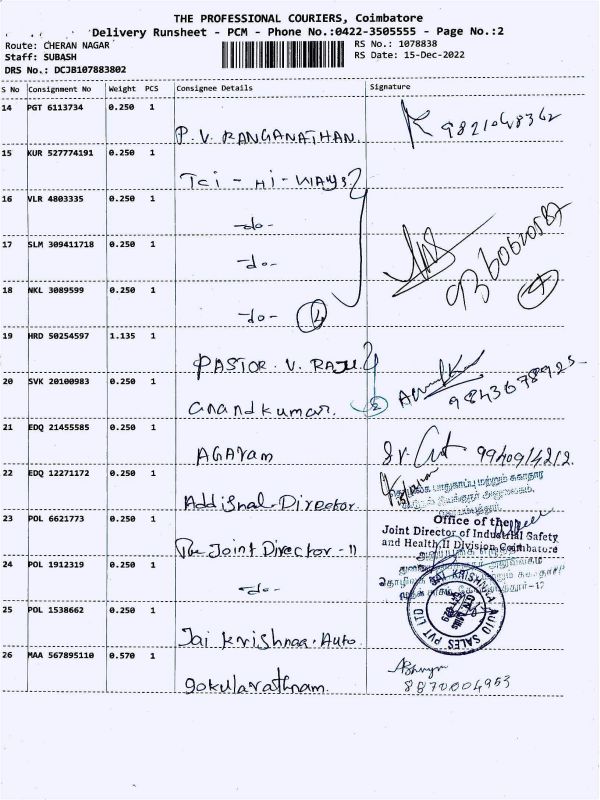 THE PROFESSIONAL COURIERS, Coimbatore
Delivery Runsheet - PCM - Phone No.:0422-3505555 - Page No.:2
Route: CHERAN NAGAR
RS No.: 1078838
Staff: SUBASH
RS Date: 15-Dec-2022
DRS No.: DCJB107883802
S No Consignment No Weight PCS Consignee Details Signature
14 PGT 6113734 0.250 1
P. V. RANGANATHAN. 9821048362
15 KUR 527774191 0.250 1
Tci - Hi - WAYS
16 VLR 4803335 0.250 1
-do-
17 SLM 309411718 0.250 1
-do-
18 NKL 3089599 0.250 1
-do- 4
19 HRD 50254597 1.135 1
PASTOR. V. RAJU
20 SVK 20100983 0.250 1
Anandkumar. 2 9843678925
21 EDQ 21455585 0.250 1
AGAram 9940914212
22 EDQ 12271172 0.250 1
Addisnal. Director
23 POL 6621773 0.250 1
Office of the
Joint Director of Industrial Safety
and Health II Division Coimbatore
The Joint Director - II
24 POL 1912319 0.250 1
-do-
25 POL 1538662 0.250 1
SAI KRISHNAA AUTO SALES PVT LTD
Jai Krishnaa. Auto
26 MAA 567895110 0.570 1
gokularathnam. 8870004953